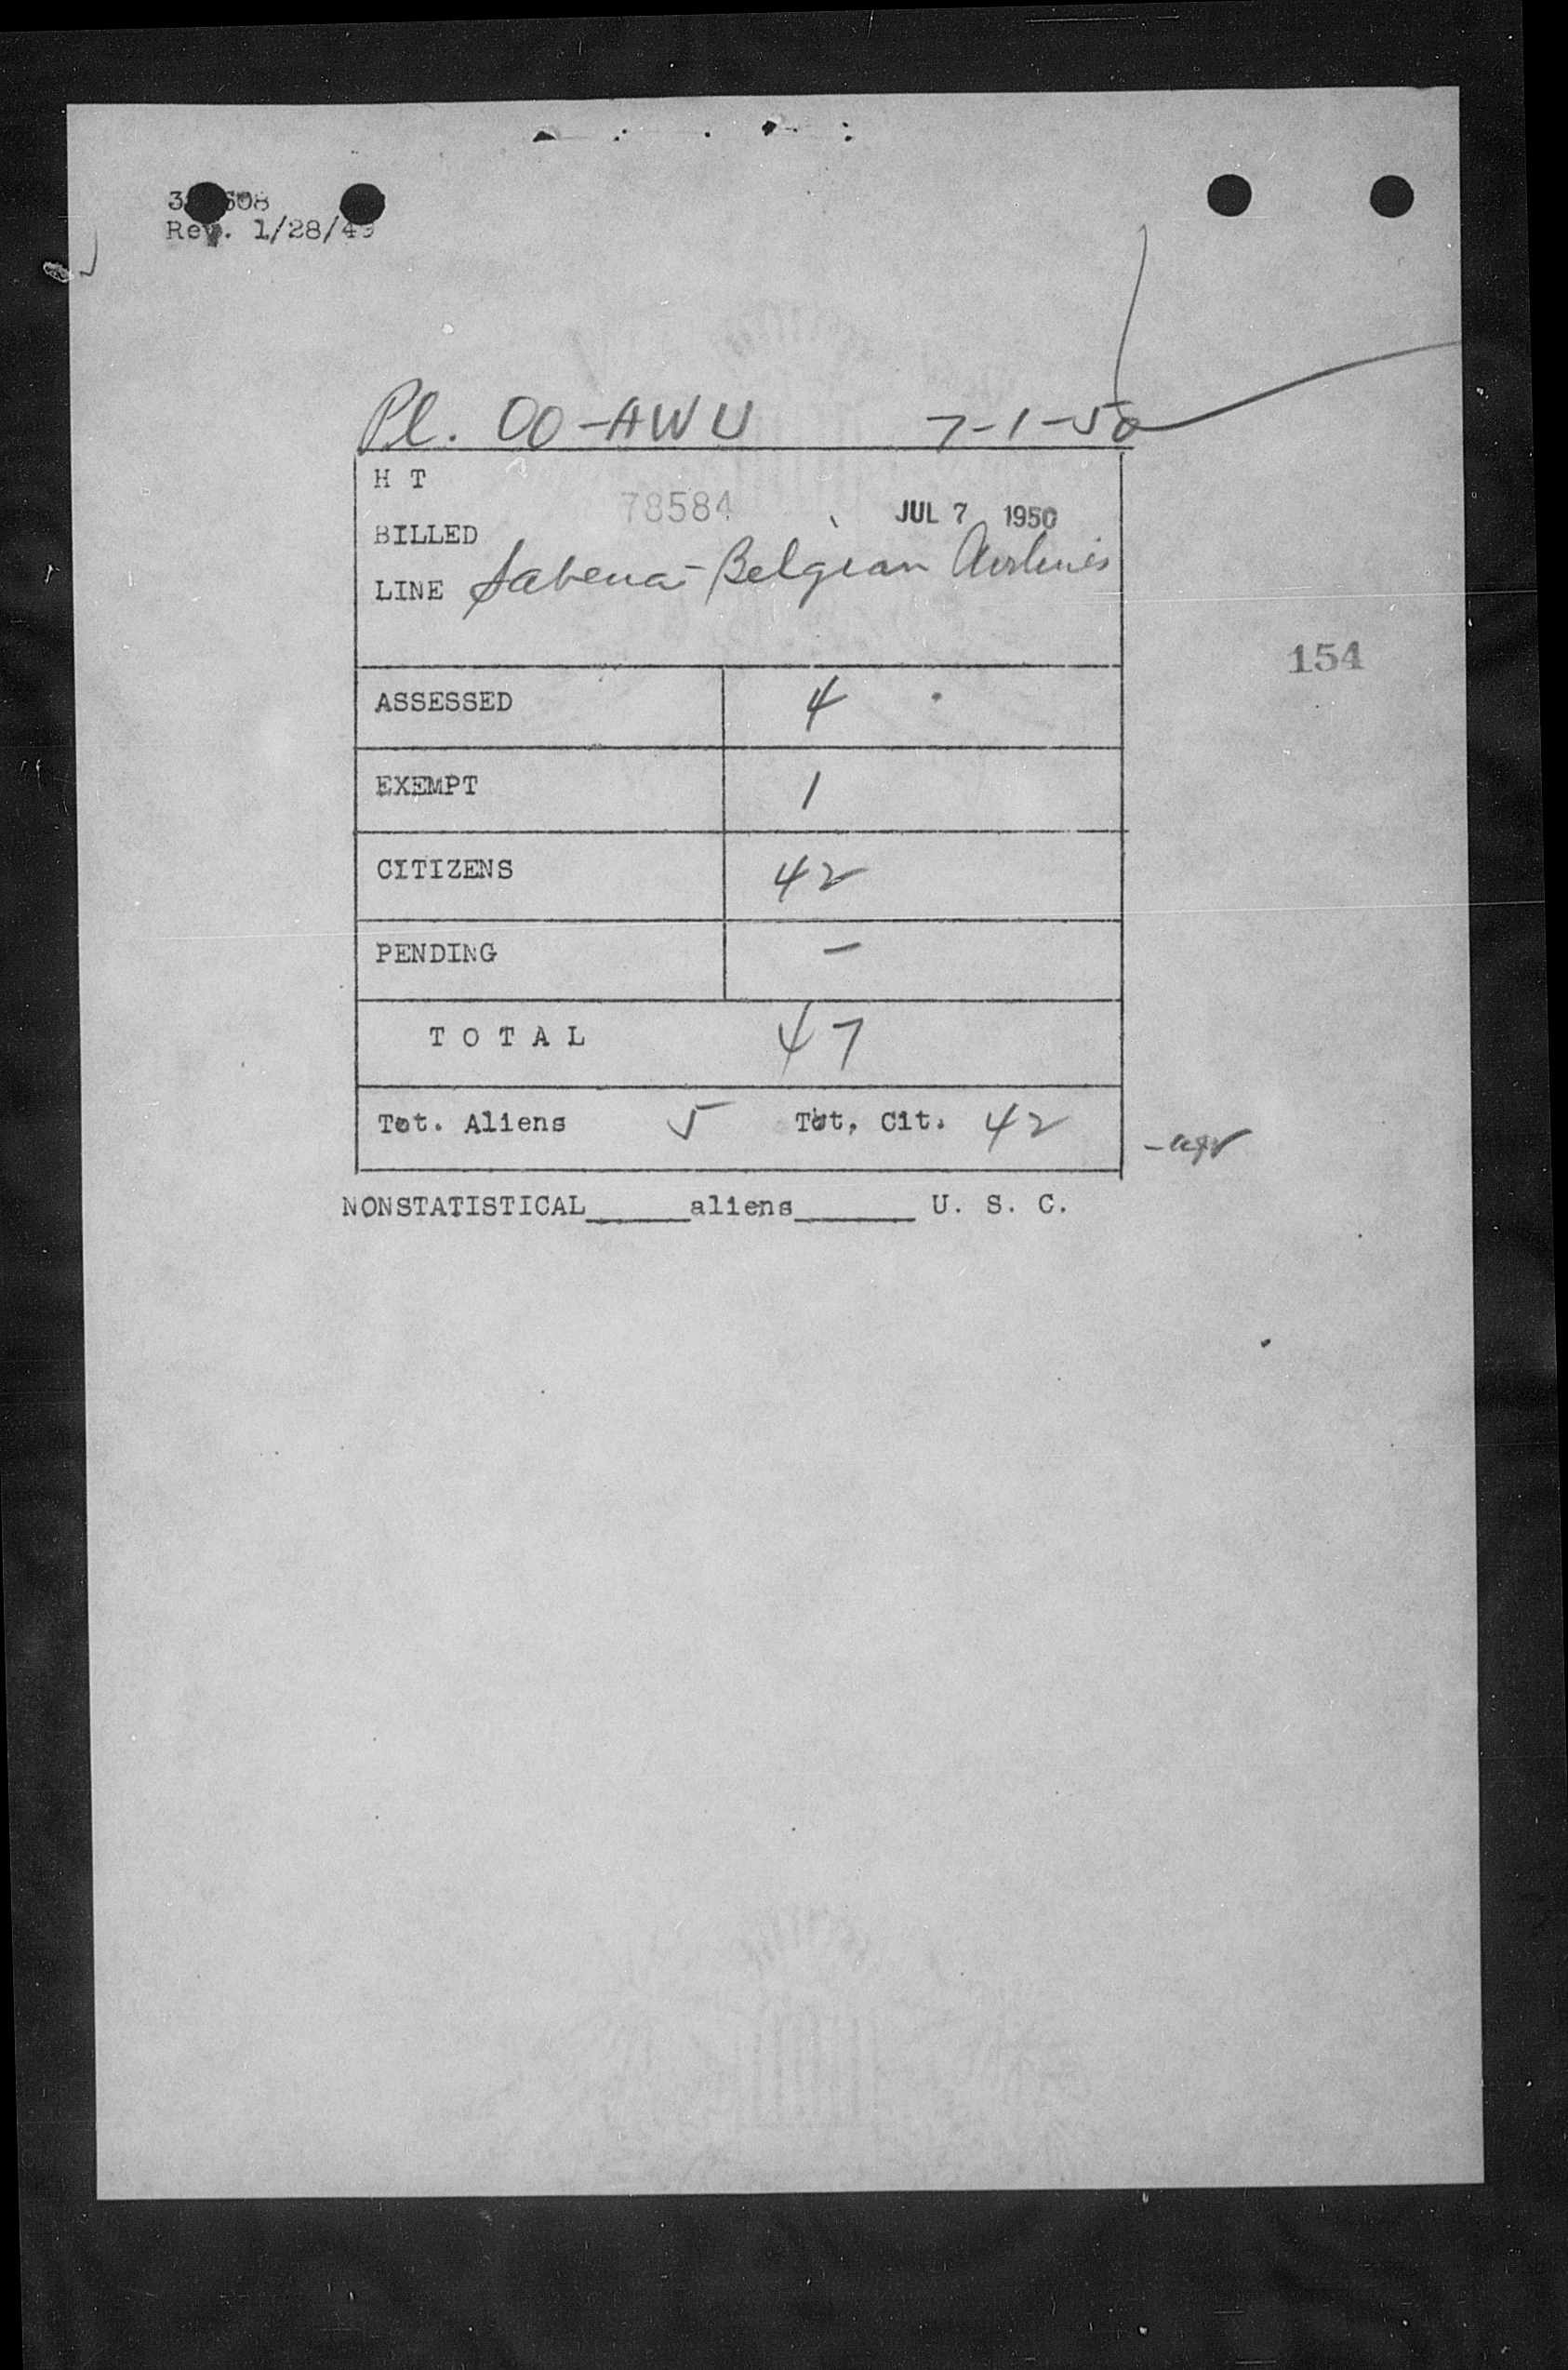 Rev. 1/28/49
Pl. OO-AWU 7-1-50
H T
78584 JUL 7 1950
BILLED
LINE Sabena-Belgian Airlines
154
ASSESSED 4
EXEMPT 1
CITIZENS 42
PENDING –
T O T A L 47
Tot. Aliens 5 Tot. Cit. 42
NONSTATISTICAL_____aliens______ U. S. C.